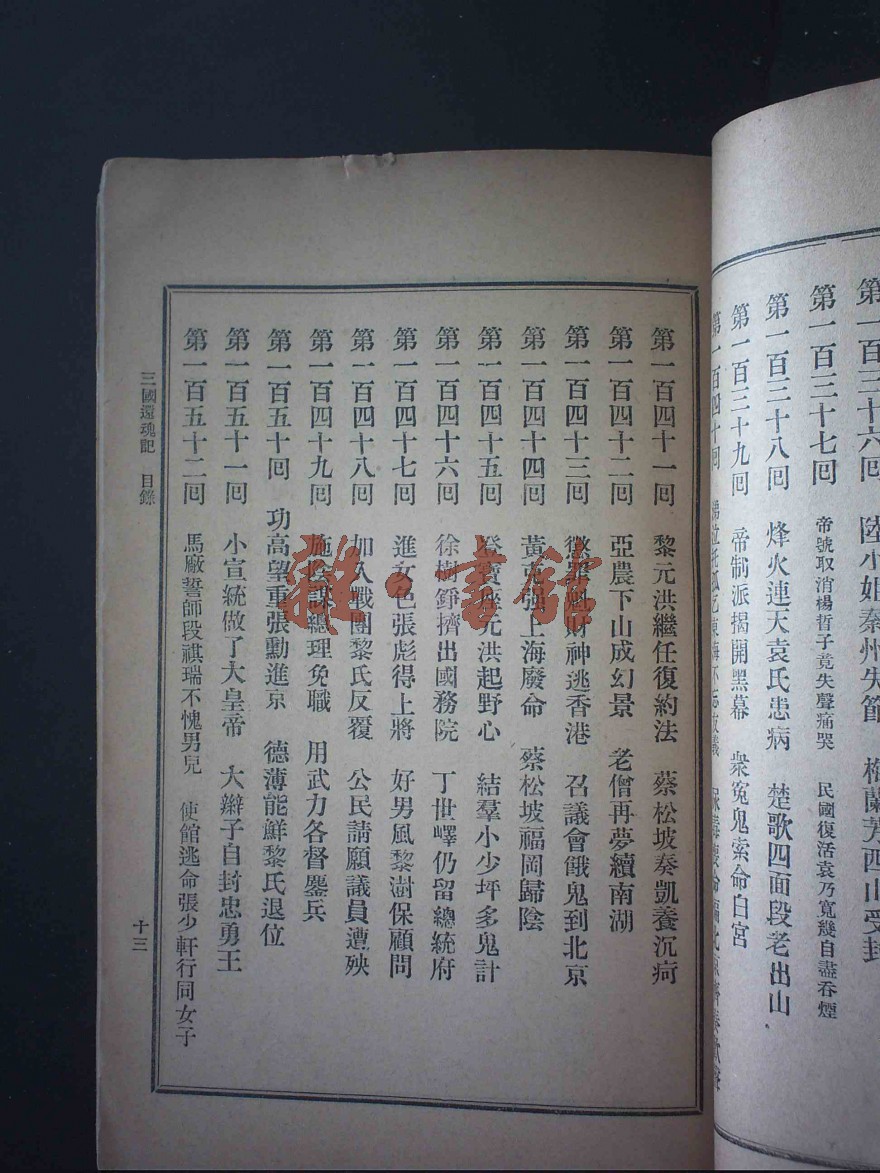 陸小姐秦州失節　梅蘭芳西山受封
第一百三十七囘　帝號取消楊晳子竟失聲痛哭　民國復活袁乃寬幾自盡吞煙
第一百三十八囘　烽火連天袁氏患病　楚歌四面段老出山
第一百三十九囘　帝制派揭開黑幕　衆冤鬼索命白宮
第一百四十囘
第一百四十一囘　黎元洪繼任復約法　蔡松坡奏凱養沉疴
第一百四十二囘　亞農下山成幻景　老僧再夢續南湖
第一百四十三囘　懲罪魁財神逃香港　召議會餓鬼到北京
第一百四十四囘　黃克强上海廢命　蔡松坡福岡歸陰
第一百四十五囘　登寶座元洪起野心　結羣小少坪多鬼計
第一百四十六囘　徐樹錚擠出國務院　丁世嶧仍留總統府
第一百四十七囘　進女色張彪得上將　好男風黎澍保顧問
第一百四十八囘　加入戰團黎氏反覆　公民請願議員遭殃
第一百四十九囘　施陰謀總理免職　用武力各督鏖兵
第一百五十囘　功高望重張勳進京　德薄能鮮黎氏退位
第一百五十一囘　小宣統做了大皇帝　大辮子自封忠勇王
第一百五十二囘　馬廠誓師段祺瑞不愧男兒　使館逃命張少軒行同女子
三國還魂記　目錄
十三
雜·書館